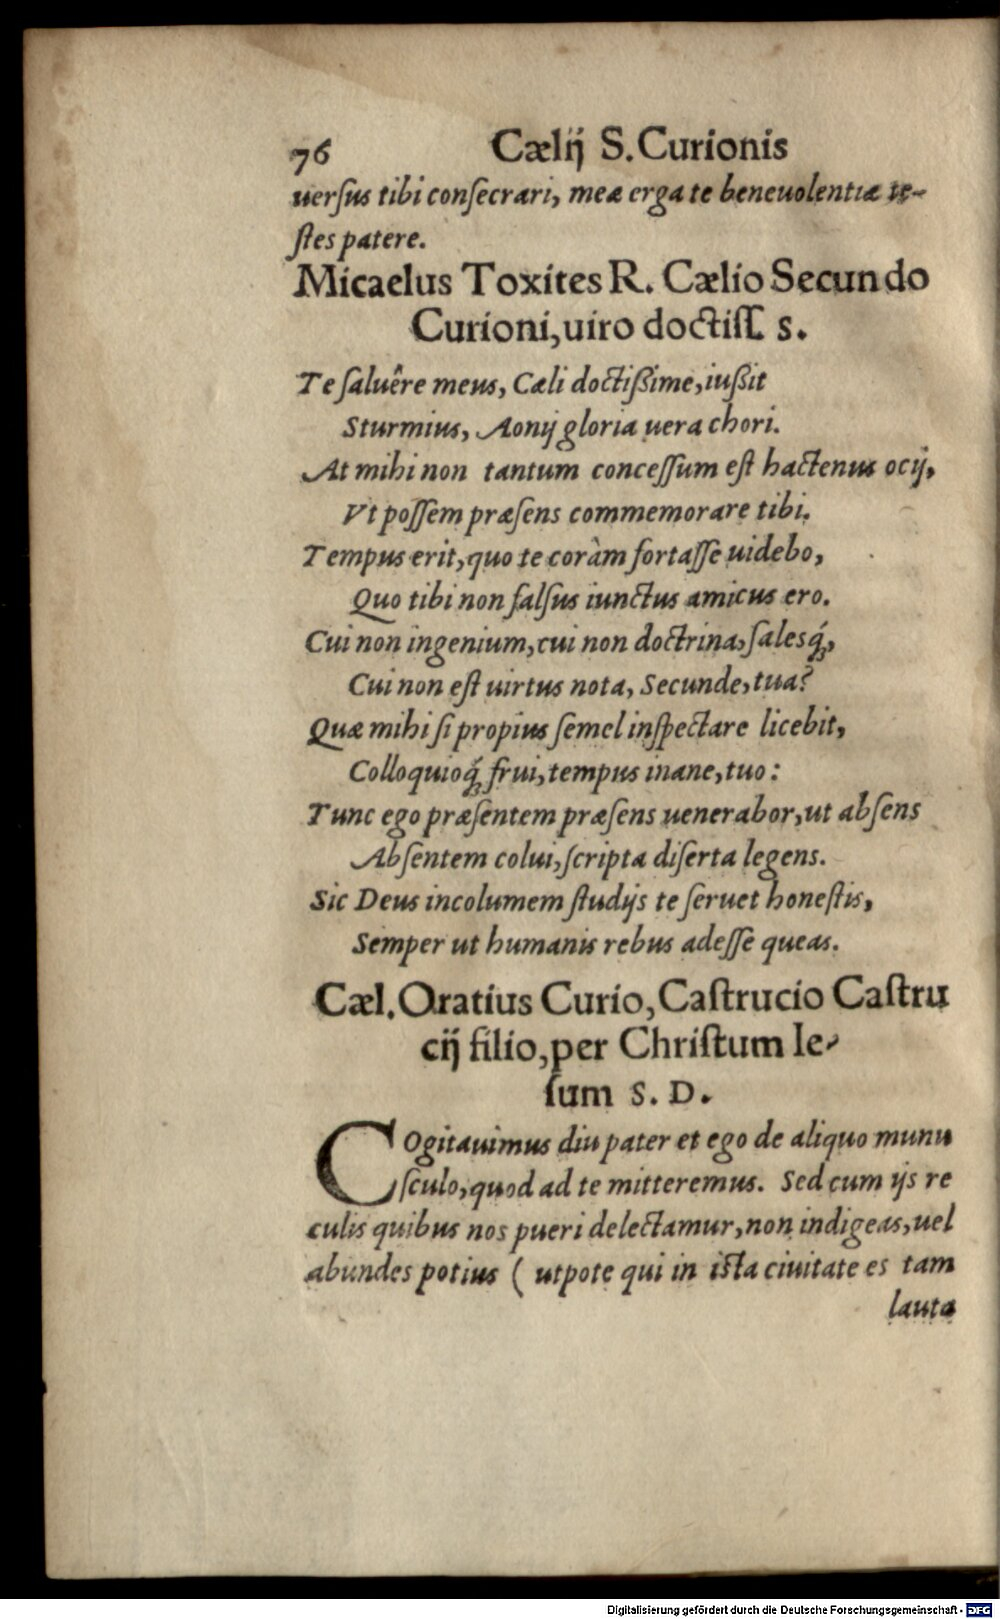 76 Cælij S. Curionis
uerſus tibi conſecrari, meæ erga te beneuolentiæ te-
ſtes patere.
Micaelus Toxites R. Cælio Secundo
Curioni, uiro doctiſſ. s.
Te ſaluêre meus, Cæli doctißime, iußit
Sturmius, Aonij gloria uera chori.
At mihi non tantum conceſſum eſt hactenus ocij,
Vt poſſem præſens commemorare tibi.
Tempus erit, quo te coràm fortaſſe uidebo,
Quo tibi non falſus iunctus amicus ero.
Cui non ingenium, cui non doctrina, ſalesq́;,
Cui non eſt uirtus nota, Secunde, tua?
Quæ mihi ſi propius ſemel inſpectare licebit,
Colloquioq́; frui, tempus inane, tuo:
Tunc ego præſentem præſens uenerabor, ut abſens
Abſentem colui, ſcripta diſerta legens.
Sic Deus incolumem ſtudijs te ſeruet honeſtis,
Semper ut humanis rebus adeſſe queas.
Cæl. Oratius Curio, Caſtrucio Caſtru
cij filio, per Chriſtum Ie-
ſum S. D.
COgitauimus diu pater et ego de aliquo munu
ſculo, quod ad te mitteremus. Sed cum ijs re
culis quibus nos pueri delectamur, non indigeas, uel
abundes potius ( utpote qui in iſta ciuitate es tam
lauta
Digitalisierung gefördert durch die Deutsche Forschungsgemeinschaft - DFG